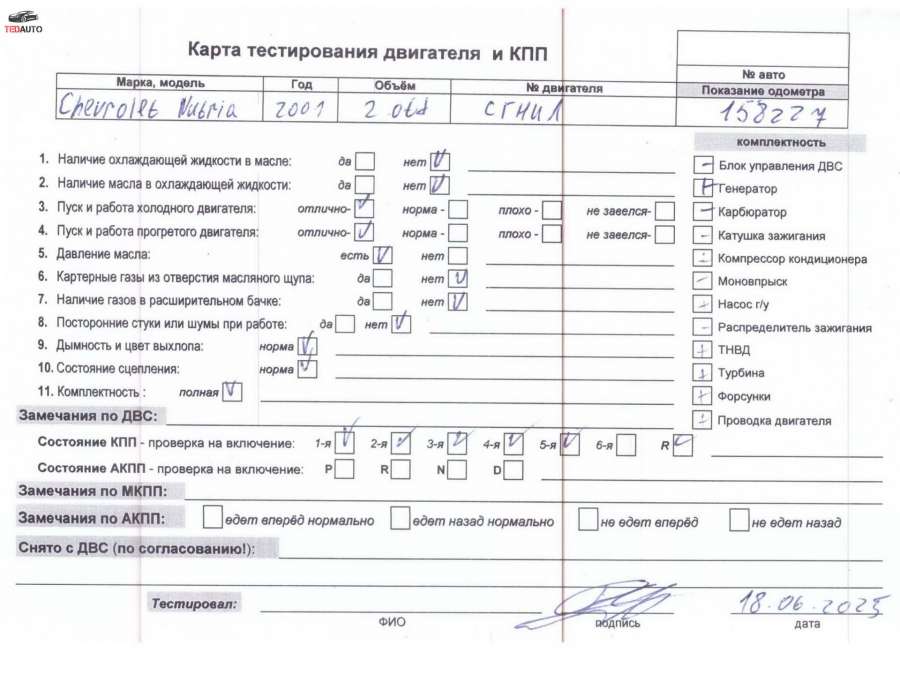 TEDAUTO
Карта тестирования двигателя и КПП
№ авто
Марка, модель Год Объём № двигателя Показание одометра
Chevrolet Nubria 2001 2 СГНИЛ 158227
комплектность
1. Наличие охлаждающей жидкости в масле: да нет V
2. Наличие масла в охлаждающей жидкости: да нет V
3. Пуск и работа холодного двигателя: отлично- V норма - плохо - не завелся-
4. Пуск и работа прогретого двигателя: отлично- V норма - плохо - не завелся-
5. Давление масла: есть V нет
6. Картерные газы из отверстия масляного щупа: да нет V
7. Наличие газов в расширительном бачке: да нет V
8. Посторонние стуки или шумы при работе: да нет V
9. Дымность и цвет выхлопа: норма V
10. Состояние сцепления: норма V
11. Комплектность : полная V
- Блок управления ДВС
+ Генератор
- Карбюратор
- Катушка зажигания
Компрессор кондиционера
- Моновпрыск
+ Насос г/у
- Распределитель зажигания
+ ТНВД
Турбина
+ Форсунки
Проводка двигателя
Замечания по ДВС:
Состояние КПП - проверка на включение: 1-я V 2-я V 3-я V 4-я V 5-я V 6-я R V
Состояние АКПП - проверка на включение: P R N D
Замечания по МКПП:
Замечания по АКПП: едет вперёд нормально едет назад нормально не едет вперёд не едет назад
Снято с ДВС (по согласованию!):
Тестировал: 18.06.2025
ФИО подпись дата